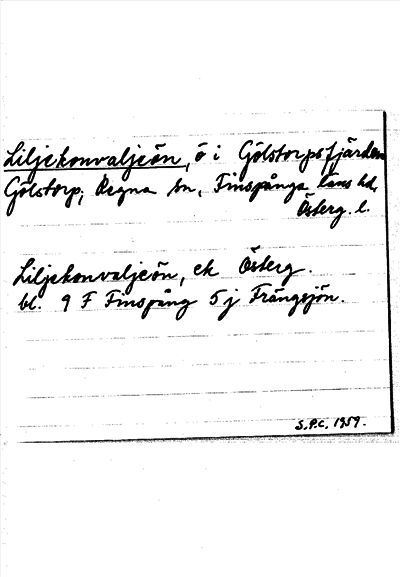 Liljekonvaljeön, ö i Gölstorpsfjärden
Gölstorp, Regna sn, Finspånga läns hd,
Österg. l.
Liljekonvaljeön, ek Österg.
bl. 9 F Finspång 5 j Trängsjön.
S.P.C. 1959.